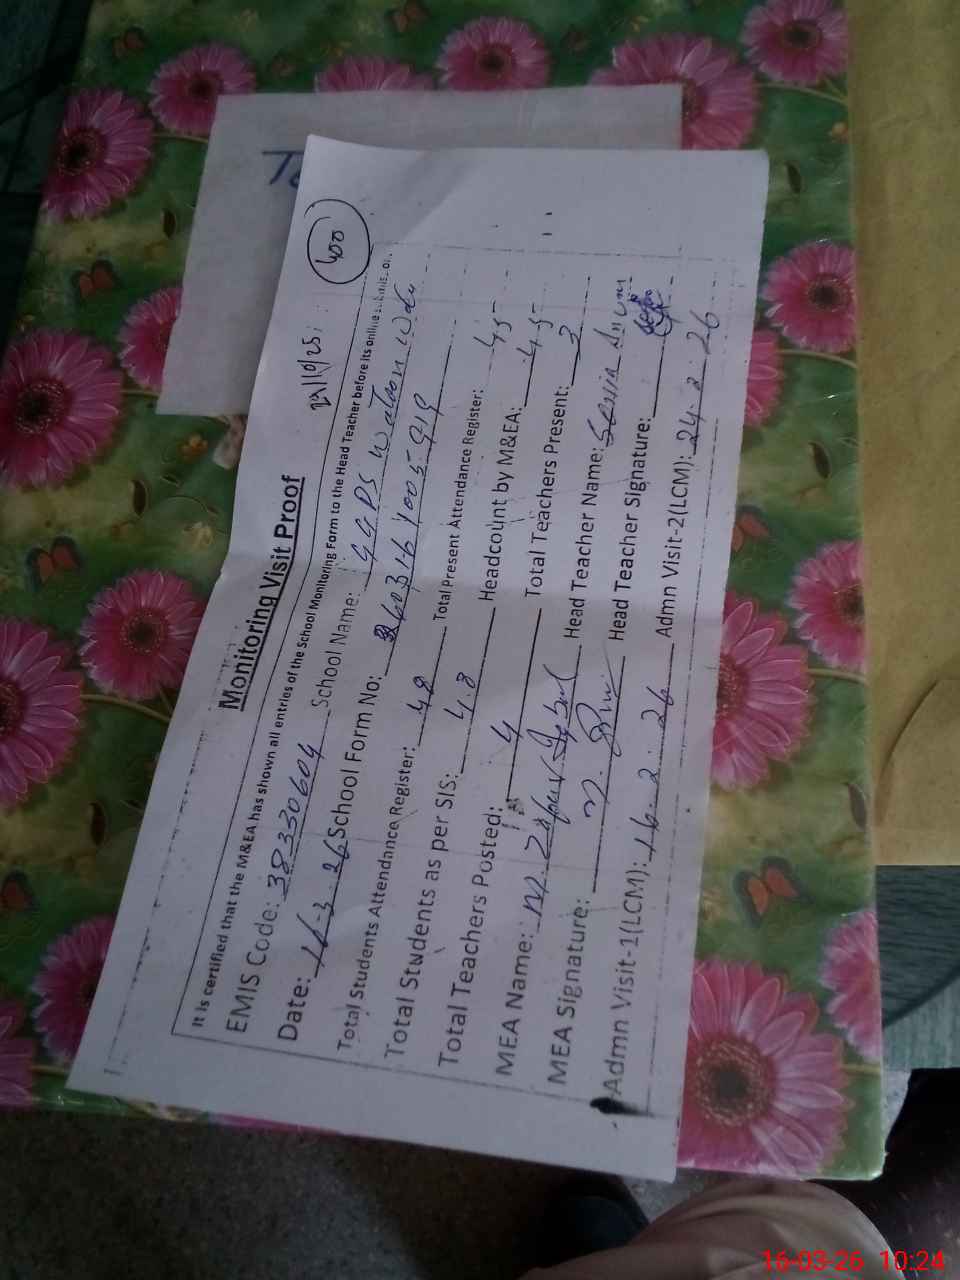 To
400
29/10/25
Monitoring Visit Proof
It is certified that the M&EA has shown all entries of the School Monitoring Form to the Head Teacher before its online
EMIS Code: 38330604 School Name: GGPS
Date: 16-3-26 School Form No:
Total Students Attendance Register: 48 Total Present Attendance Register: 45
Total Students as per SIS: 48 Headcount by M&EA: 45
Total Teachers Posted: 4 Total Teachers Present: 3
MEA Name: M. Zafar Iqbal Head Teacher Name:
MEA Signature: Head Teacher Signature:
Admn Visit-1(LCM): 16-2-26 Admn Visit-2(LCM): 24-2-26
16-03-26 10:24